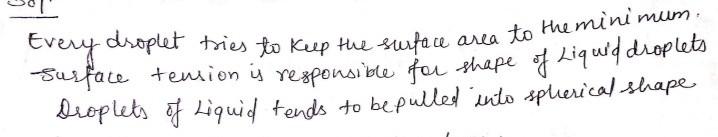 Sol.
Every droplet tries to keep the surface area to the minimum.
Surface tension is responsible for shape of Liquid droplets
Droplets of Liquid tends to be pulled into spherical shape